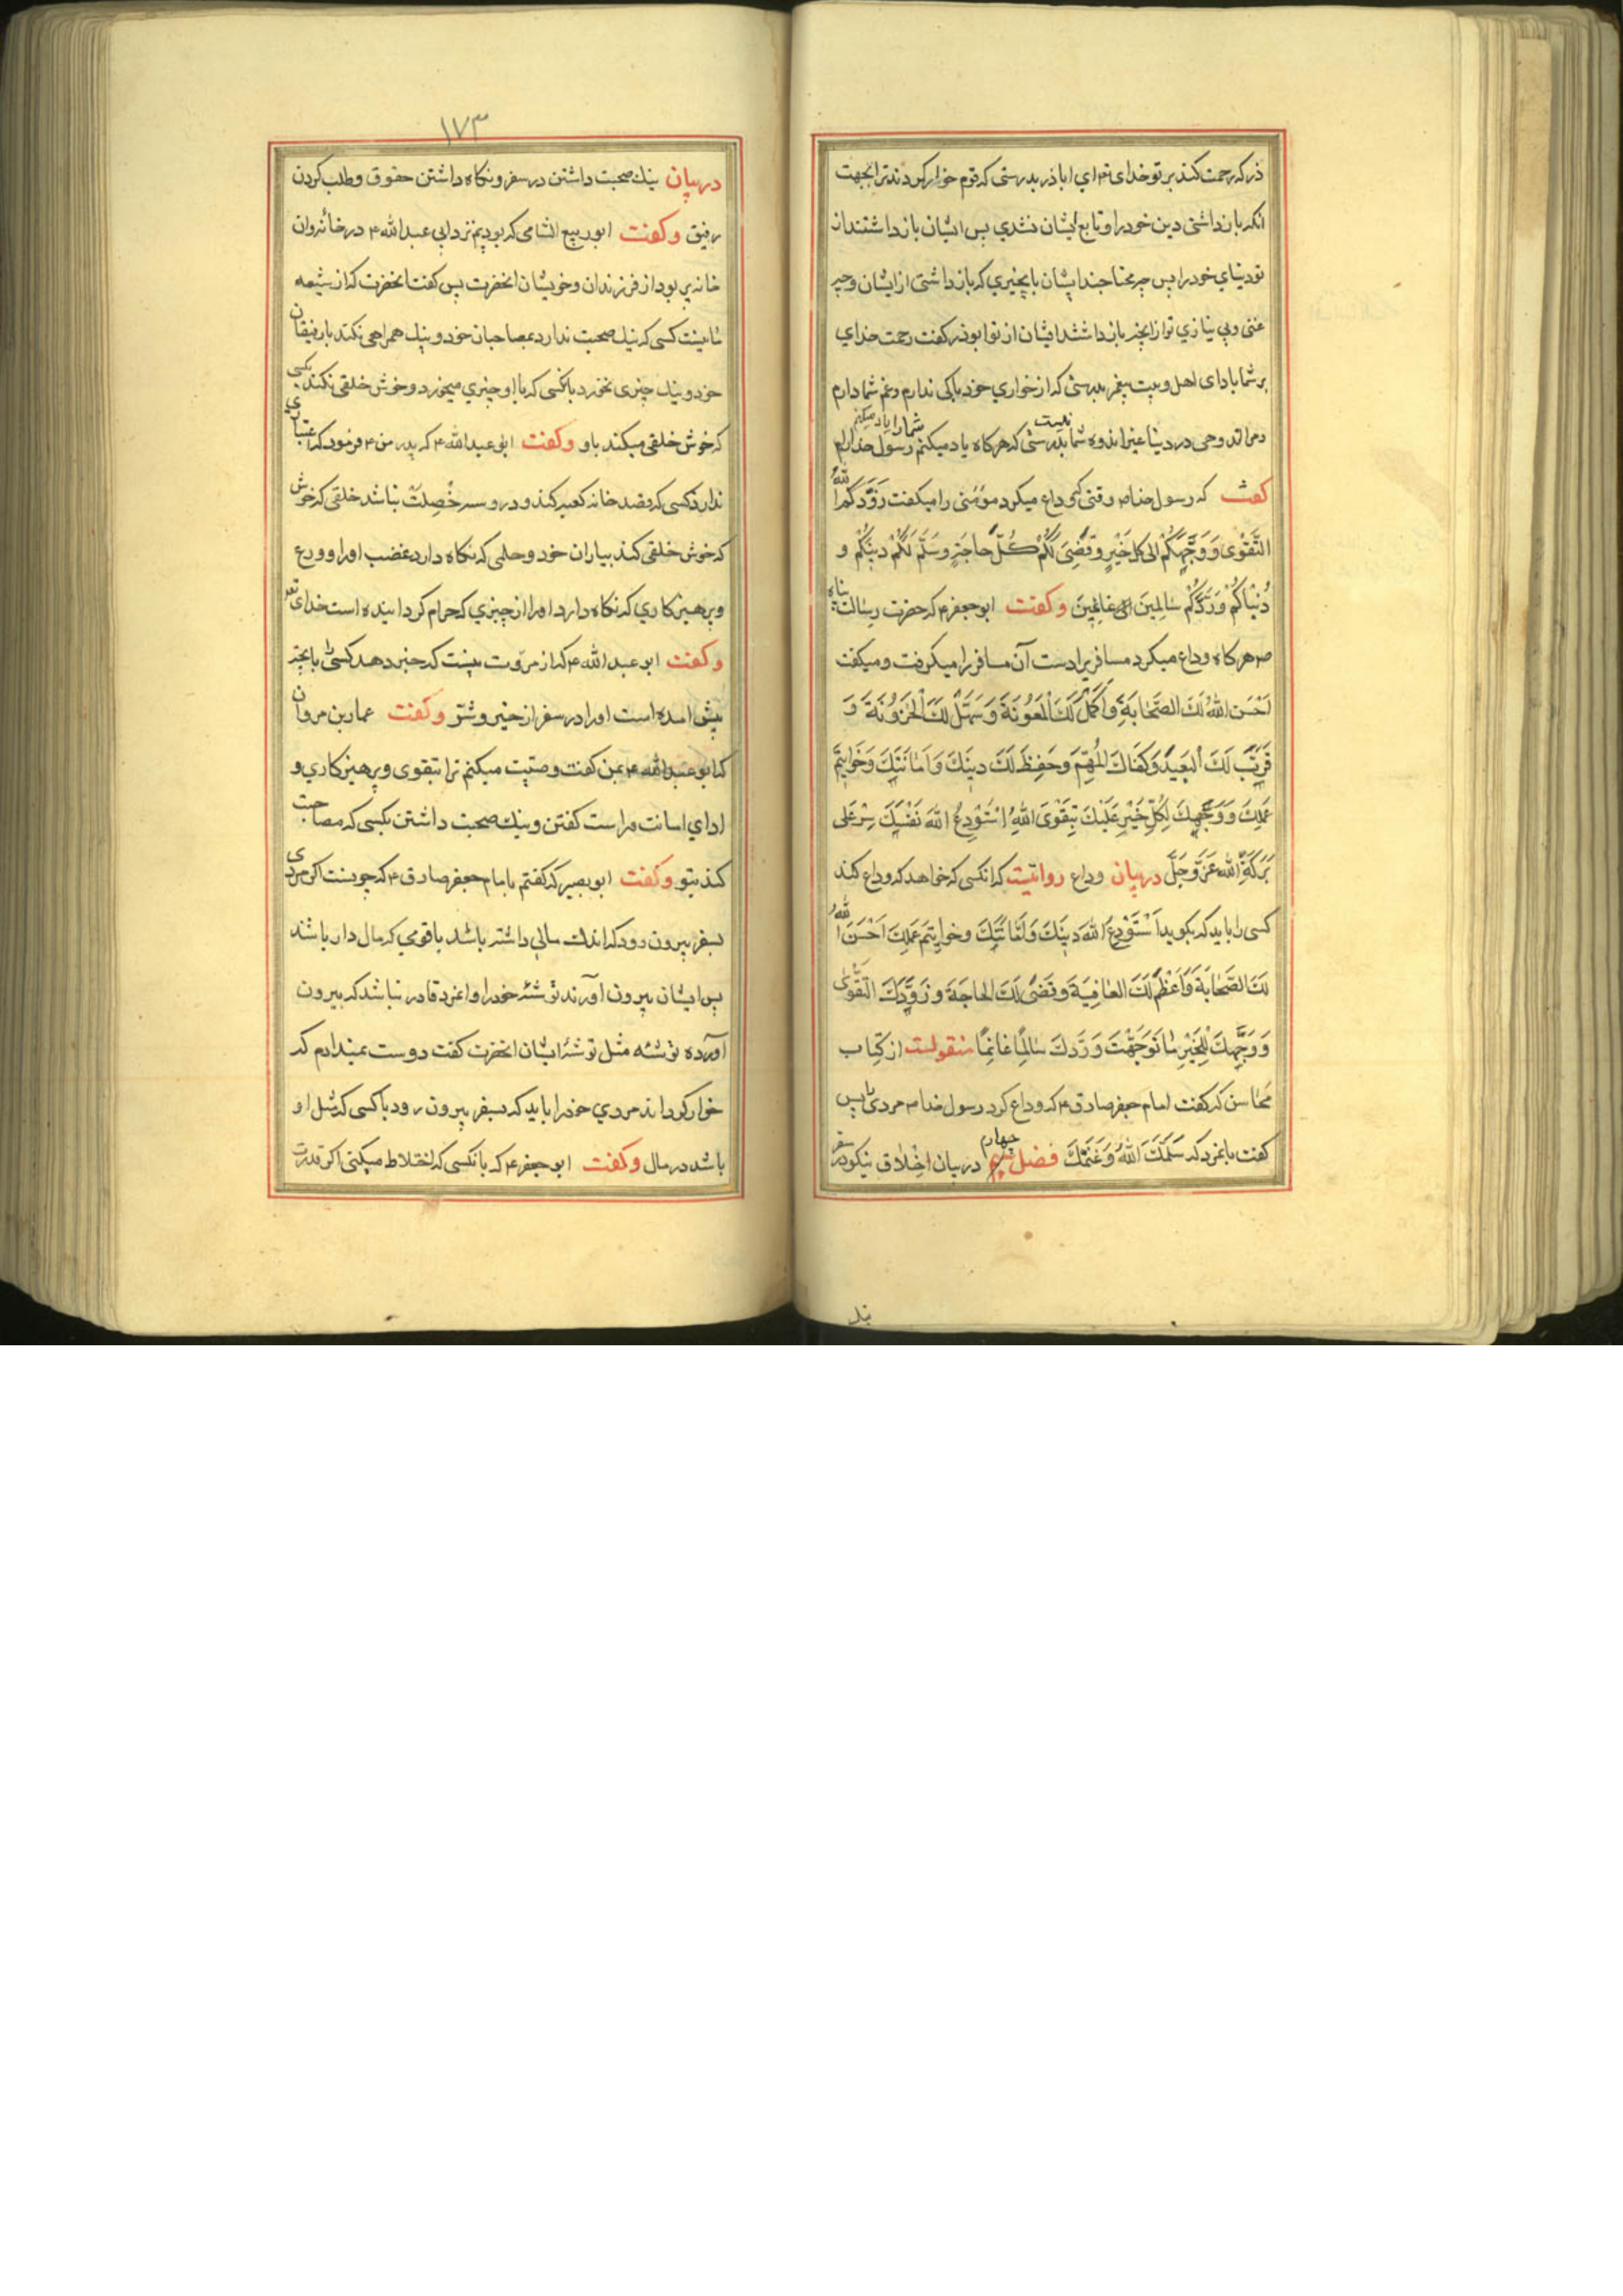 ذر که رحمت کند بر تو خدای تع ای اباذر بدرستی که قوم خوار کردند ترا بجهت
انکه بازداشتی دین خود را و تابع ایشان نشدی پس ایشان بازداشتند از
تو دنیای خود را پس چه محتاجند ایشان بانچیزی که بازداشتی از ایشان و چه
غنی و بی نیازی تو از انچه بازداشتند ایشان از تو ابوذر کفت رحمت خدای
بر شما باد ای اهل و بیت پیغمبر بدرستی که از خواری خود باکی ندارم و غم شما دارم
در دنیا غیر اندوه شما نیست بدرستی که هرکاه یاد میکنم شما را یاد میکنم رسول خدا را
کفت که رسول خدا ص وقتی که وداع میکرد مؤمنی را میکفت زَوَّدَکُمُ اللهُ
التَّقْوٰی وَ وَجَّهَکُمْ الی کل خَیْرٍ وَ قَضٰی لَکُمْ کُلَّ حاجَةٍ وَ سَلَّمَ لَکُمْ دینَکُمْ وَ
دُنْیاکُمْ وَ رَدَّکُمْ سٰالِمینَ الی غانِمینَ و کفت ابو جعفر ع که حضرت رسالت پناه
ص هرکاه وداع میکرد مسافریرا دست آن مسافر را میکرفت و میکفت
اَحْسَنَ اللهُ لَكَ الصَّحابَةَ وَ اَکْمَلَ لَكَ الْمَعُونَةَ وَ سَهَّلَ لَكَ الْحُزُونَةَ وَ
قَرَّبَ لَكَ الْبَعیدَ وَ کَفاكَ الْمُهِمَّ وَ حَفِظَ لَكَ دینَكَ وَ اَمانَتَكَ وَ خَواتیمَ
عَمَلِكَ وَ وَجَّهَكَ لِکُلِّ خَیْرٍ عَلَیْكَ بِتَقْوَی اللهِ اَسْتَوْدِعُ اللهَ نَفْسَكَ سِرْ عَلٰی
بَرَکَةِ اللهِ عَزَّ وَجَلَّ در بیان وداع روایتست که انکسی که خواهد که وداع کند
کسی را باید که بکوید اَسْتَوْدِعُ اللهَ دینَكَ وَ اَمانَتَكَ و خواتیمَ عَمَلِكَ اَحْسَنَ اللهُ
لَكَ الصَّحابَةَ وَ اَعْظَمَ لَكَ العافِیَةَ وَ قَضٰی لَكَ الحاجَةَ وَ زَوَّدَكَ التَّقْوٰی
وَ وَجَّهَكَ لِلْخَیْرِ مٰا تَوَجَّهْتَ وَ رَدَّكَ سٰالِمًا غانِمًا منقولست از کتاب
محاسن که کفت امام جعفر صادق ع که وداع کرد رسول خدا ص مردی را پس
کفت بانمرد که سَلَّمَكَ اللهُ وَ غَنَّمَكَ فصل چهارم در بیان اخلاق نیکو در سفر
۱۷۳
در بیان نیك صحبت داشتن در سفر و نکاه داشتن حقوق و طلب کردن
رفیق و کفت ابو ربیع الشامی که بودیم نزد ابی عبد الله ع در خانه و ان
خانه پر بود از فرزندان و خویشان انحضرت پس کفت انحضرت که از شیعه
ما نیست کسی که نیك صحبت ندارد بمصاحبان خود و نیك همراهی نکند با رفیقان
خود و نیك چیزی نخورد با انکسی که با او چیزی میخورد و خوش خلقی نکند بکسی
که خوش خلقی میکند باو و کفت ابو عبد الله ع که پدر من ع فرمود که اعتباری
ندارد کسی که قصد خانه کعبه کند و در و سه خصلت نباشد خلقی که خوش
که خوش خلقی کند بیاران خود و حلمی که نکاه دارد غضب او را و ورع
و پرهیزکاری که نکاه دارد او را از چیزی که حرام کردانیده است خدای تع
و کفت ابو عبد الله ع که از مروت نیست که خبر دهد کسی بانچه
پیش امده است او را در سفر از خیر و شر و کفت عمار بن مروان
که ابو عبد الله ع بمن کفت وصیت میکنم ترا بتقوی و پرهیزکاری و
ادای امانت و راست کفتن و نیك صحبت داشتن بکسی که مصاحبت
کند بتو و کفت ابو بصیر که کفتم بامام جعفر صادق ع که چونست اکر مردی
بسفر بیرون رود که اندك مالی داشته باشد با قومی که مال دار باشند
پس ایشان بیرون آورند توشئه خود را و انمرد قادر نباشد که بیرون
آورده توشئه مثل توشئه ایشان انحضرت کفت دوست نمیدارم که
خوار کرداند مردی خود را باید که بسفر بیرون رود با کسی که مثل او
باشد در مال و کفت ابو جعفر ع که با انکسی که اختلاط میکنی اکر قدرت